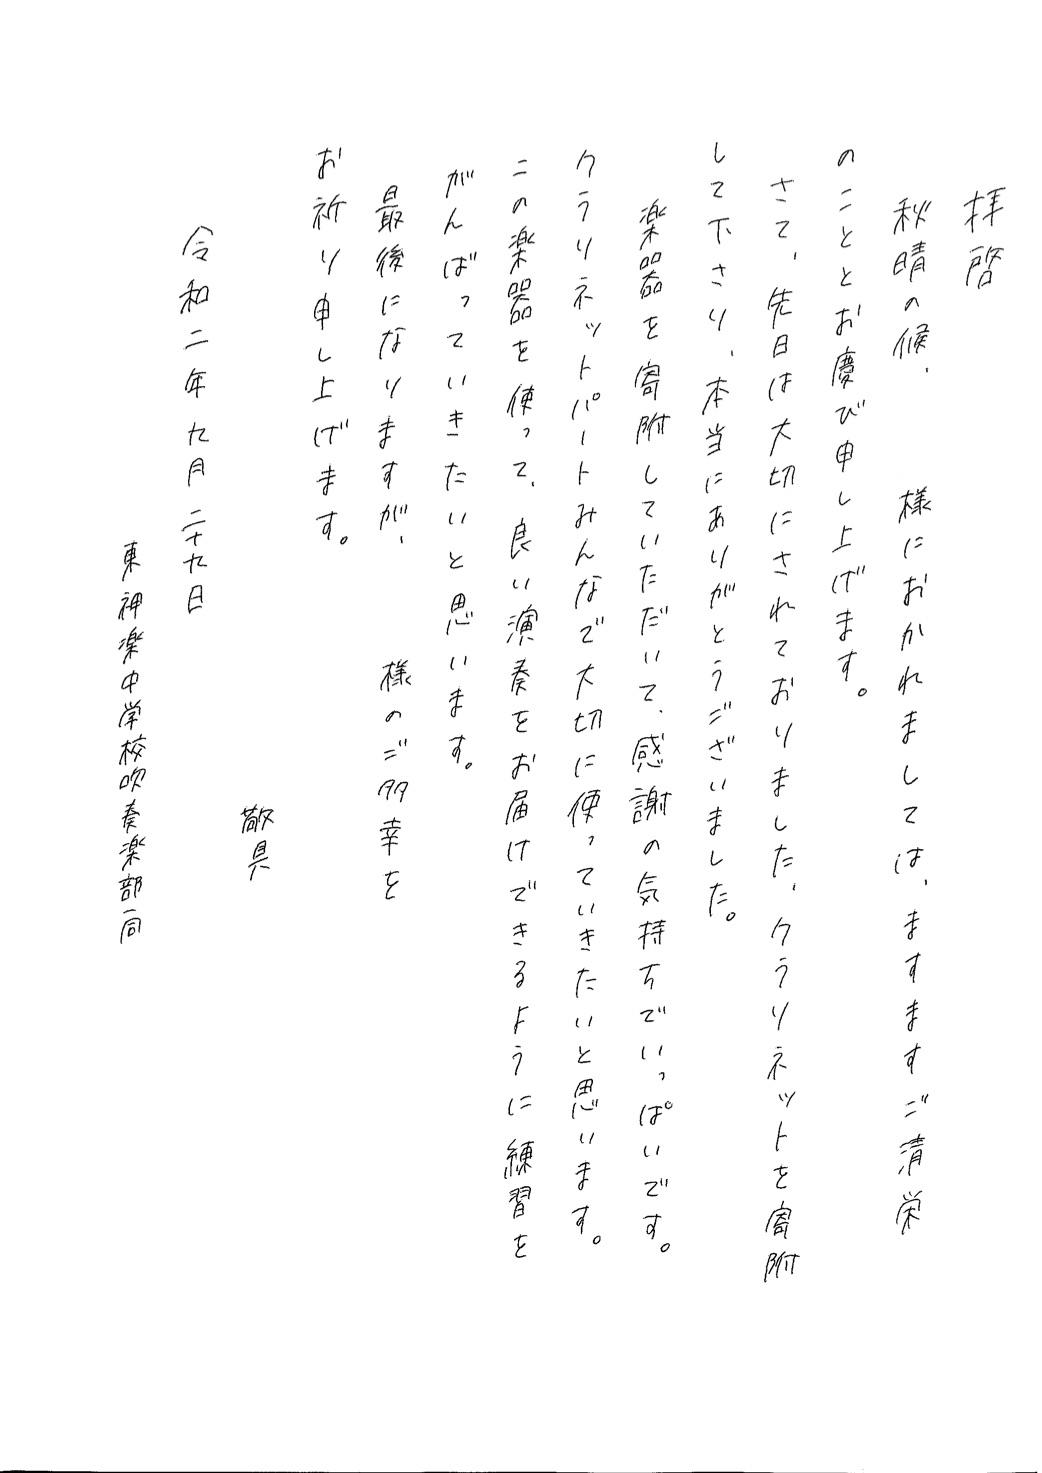 拝啓
秋晴の候、　　様におかれましては、ますますご清栄
のこととお慶び申し上げます。
さて、先日は大切にされておりました、クラリネットを寄附
して下さり、本当にありがとうございました。
楽器を寄附していただいて、感謝の気持ちでいっぱいです。
クラリネットパートみんなで大切に使っていきたいと思います。
この楽器を使って、良い演奏をお届けできるように練習を
がんばっていきたいと思います。
最後になりますが、　　様のご多幸を
お祈り申し上げます。
敬具
令和二年九月二十九日
東神楽中学校吹奏楽部一同